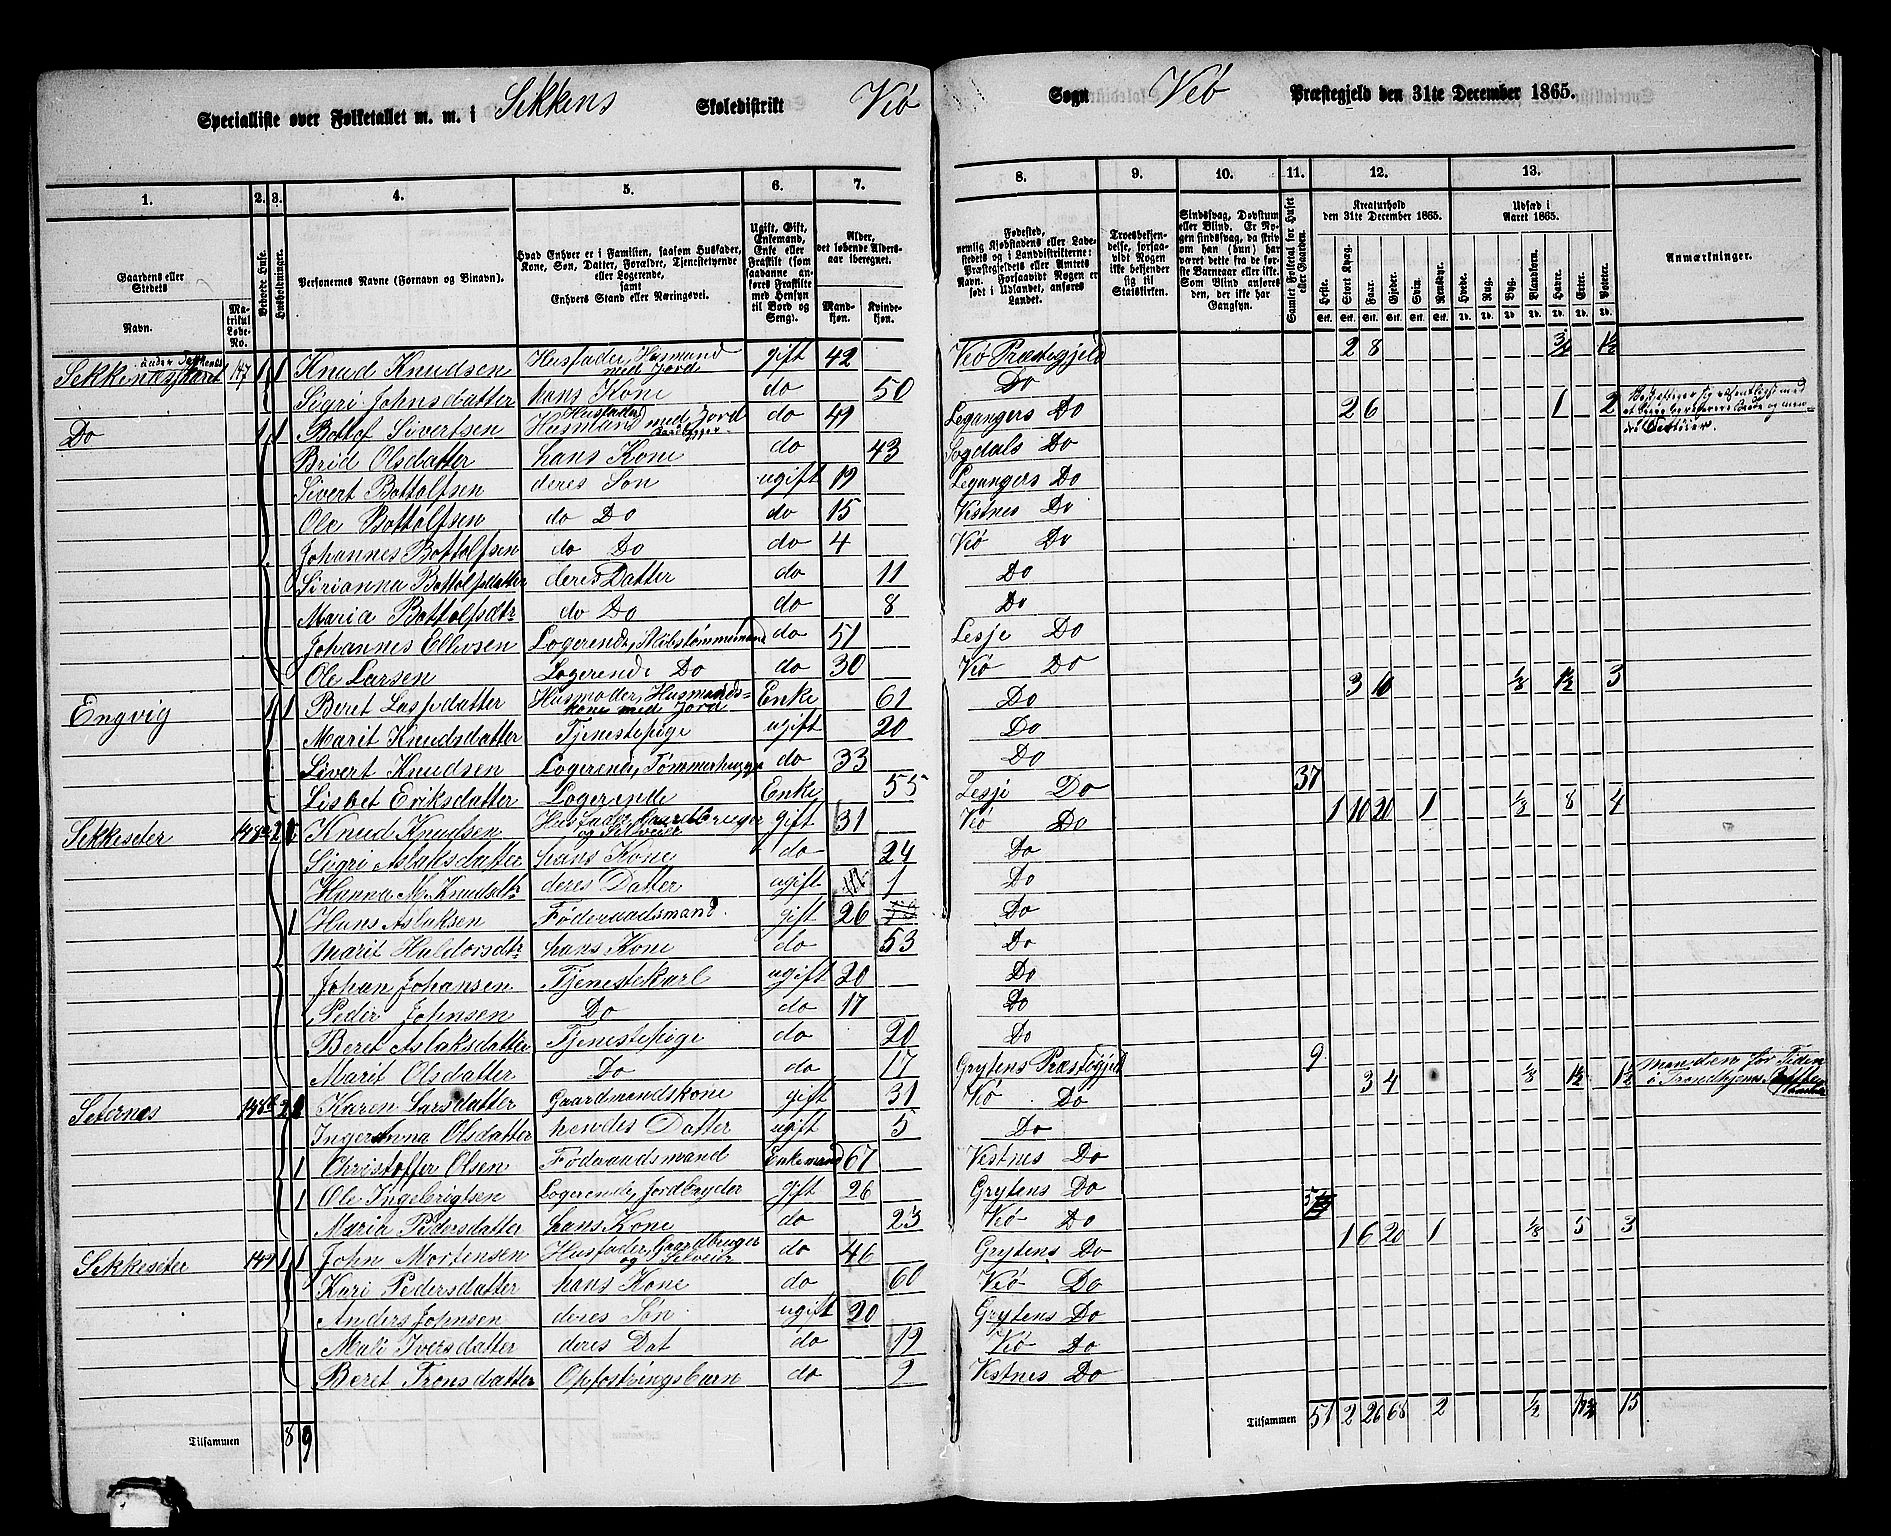 Specialliste over Folketallet m. m. i Sekkens Skoledistrikt Veø Sogn Veø Præstegjeld den 31te December 1865.
1. 2. 3. 4. 5. 6. 7. 8. 9. 10. 11. 12. 13.
Gaardens eller Stedets Navn. Matrikul Løbe-No. Beboede Huse. Husholdninger. Personernes Navne (Fornavn og Binavn). Hvad Enhver er i Familien, saasom Husfader, Kone, Søn, Datter, Forældre, Tjenestetyende eller Logerende, samt Enhvers Stand eller Næringsvei. Ugift, Gift, Enkemand, Enke eller Fraskilt (som saadanne anføres Fraskilte med Hensyn til Bord og Seng). Alder, det løbende Aldersaar iberegnet. Mandkjøn. Kvindekjøn.
Fødested, nemlig Kjøbstadens eller Ladestedets og i Landdistrikterne: Præstegjeldets eller Amtets Navn. Forsaavidt Nogen er født i Udlandet, anføres Landet. Troesbekjendelse, forsaavidt Nogen ikke bekjender sig til Statskirken. Sindssvag, Døvstum eller Blind. Er Nogen sindssvag, da skriv om han (hun) har været dette fra de første Barneaar eller ikke. Som Blind anføres den, der ikke har Gangsyn. Samlet Folketal for Huset eller Gaarden. Kreaturhold den 31te December 1865. Udsæd i Aaret 1865. Anmærkninger.
Heste. Stort Kvæg. Faar. Gjeder. Svin. Rensdyr. Hvede. Rug. Byg. Blandkorn. Havre. Erter. Poteter.
147 1 1 Knud Knudsen Husfader, Husmand med Jord gift 42 Veø Præstegjeld 2 8 3/4 1½
Sigri Johnsdatter hans Kone do 50 Do
Do 1 1 Bottof Sivertsen Husfader Husmand med Jord do 49 Legangers Do 2 6 1 2
Brid Olsdatter hans Kone do 43 Sogdals Do
Sivert Bottolfsen deres Søn ugift 19 Legangers Do
Ole Bottolfsen do Do do 15 Vestnes Do
Johannes Bottolfsen do Do do 4 Veø Do
Sirianna Bottolfsdatter deres Datter do 11 Do
Maria Bottolfsdtr do Do do 8 Do
Johannes Ellevsen Logerende, Skibstømmermand do 51 Lesje Do
Ole Larsen Logerende Do do 30 Veø Do
Engvig 1 1 Beret Lassedatter Husmoder, Husmandskone med Jord Enke 61 Do 3 10 1/8 1½ 3
Marit Knudsdatter Tjenestepige ugift 20 Do
Sivert Knudsen Logerende, Tømmerhugger do 33 Do
Lisbet Eriksdatter Logerende Enke 55 Lesje Do 37
Sekkeseter 148a 2 1 Knud Knudsen Husfader, Gaardbruger og Selveier gift 31 Veø Do 1 10 20 1 8 4
Sigri Aslaksdatter hans Kone do 24 Do
Hanna M. Knudsdtr deres Datter ugift 1 Do
1 Hans Aslaksen Føderaadsmand gift 26 Do
Marit Haldorsdtr hans Kone do 53 Do
Johan Johansen Tjenestekarl ugift 20 Do
Peder Johnsen Do do 17 Do
Beret Aslaksdatter Tjenestepige do 20 Do
Marit Olsdatter Do do 17 Grytens Præstegjeld 9
Seternes 148b 2 1 Karen Larsdatter Gaardmandskone gift 31 Veø Do 3 4 1/8 1½ 1½ Manden for Tiden i Trondhjems
Ingeranna Olsdatter hendes Datter ugift 5 Do
1 Christoffer Olsen Føderaadsmand Enkemand 67 Vestnes Do
1 Ole Ingebrigtsen Logerende, Jordbryder gift 26 Grytens Do
Maria Pedersdatter hans Kone do 23 Veø Do 5
Sekkeseter 149 1 1 John Mortensen Husfader, Gaardbruger og Selveier do 46 Grytens Do 1 6 20 1 1/8 5 3
Kari Pedersdatter hans Kone do 60 Veø Do
Anders Johnsen deres Søn ugift 20 Grytens Do
Mali Iversdatter deres Dat do 19 Veø Do
Beret Tronsdatter Opfostringsbarn do 9 Vestnes Do
Tilsammen 8 9 Tilsammen 51 2 26 68 2 ½ 15